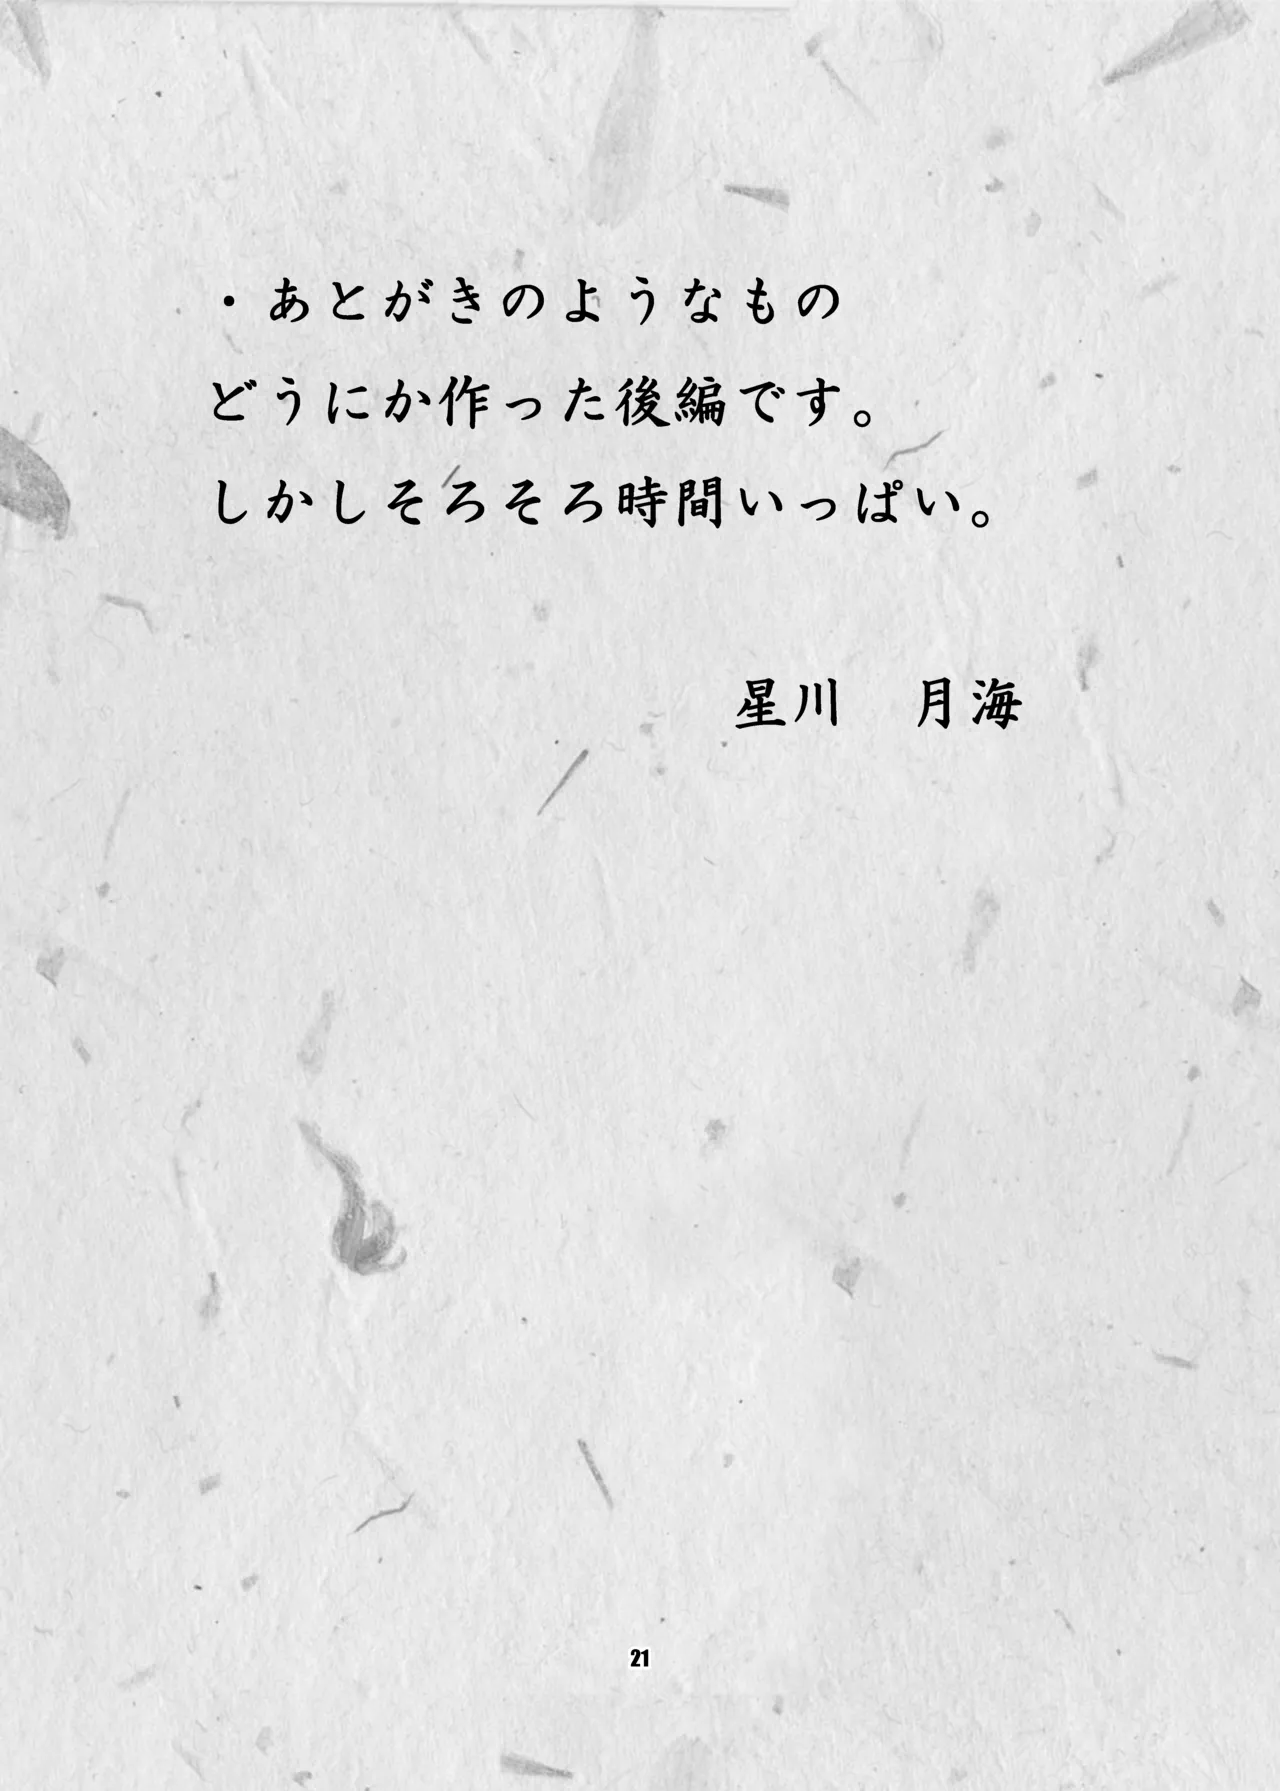 ・あとがきのようなもの
どうにか作った後編です。
しかしそろそろ時間いっぱい。
星川　月海
21